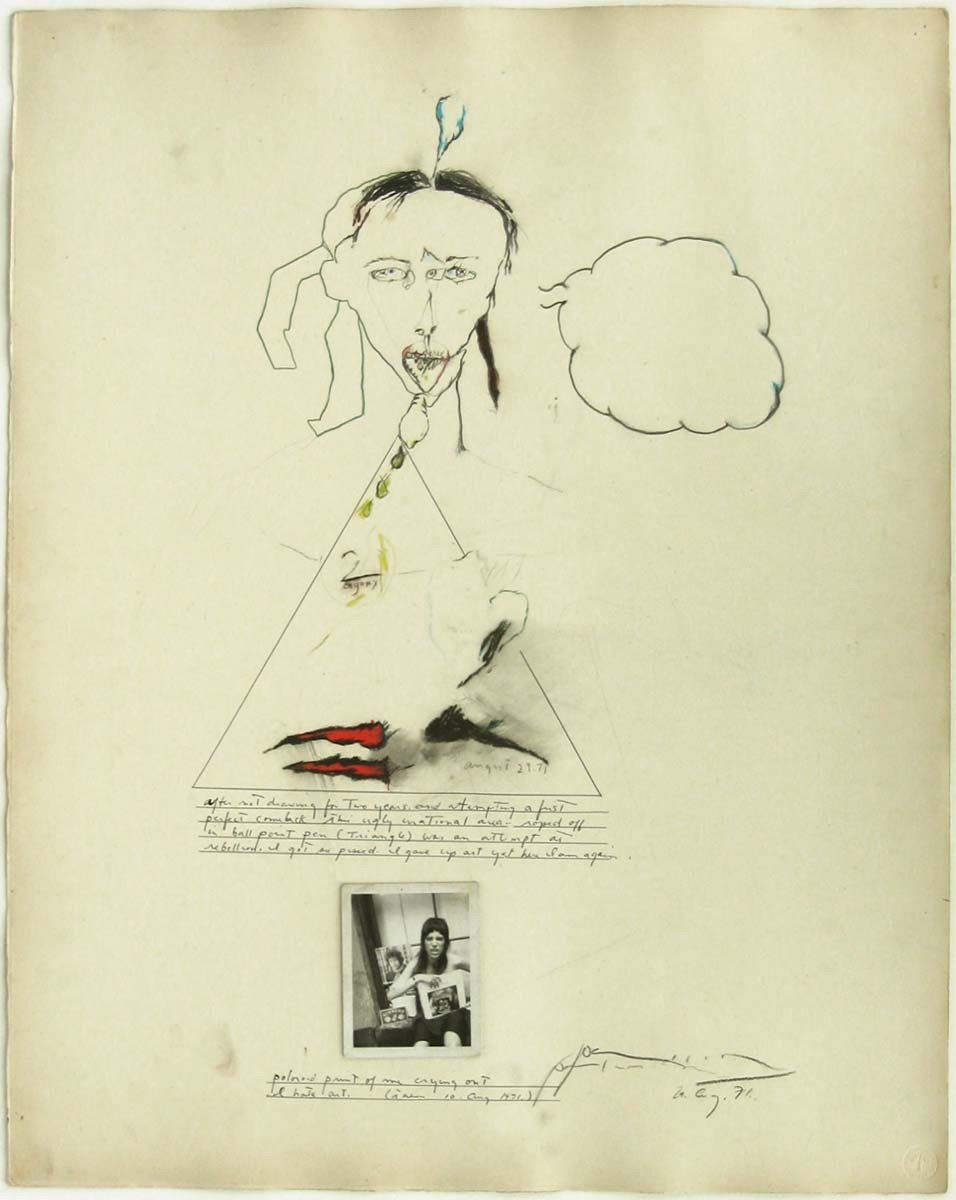 2
august 29.71
after not drawing for two years. and attempting a first
perfect comeback this ugly irrational area- roped off
in ball point pen (Triangle) was an attempt at
rebellion. I got so pissed I gave up art yet here I am again.
poloroid print of me crying out
I hate art. (taken 10. Aug 1971.)
Aug. 71.